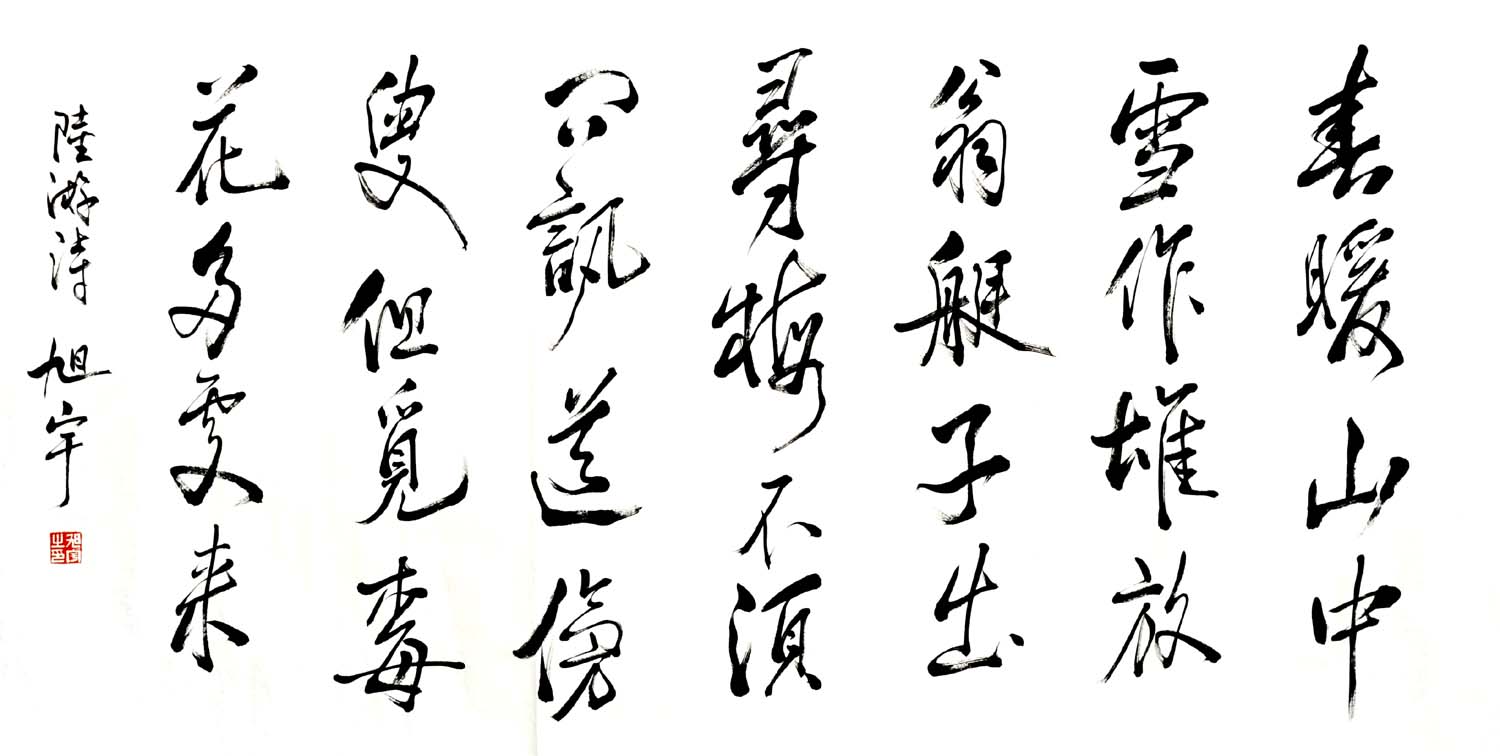 春暖山中
雪作堆放
翁艇子出
尋梅不須
问訊道傍
叟但覓梅
花多處来
陸游詩 旭宇
旭宇之印